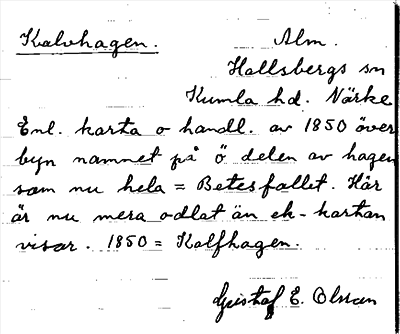 Kalvhagen. Alm.
Hallsbergs sn
Kumla hd. Närke
Enl. karta o handl. av 1850 över
byn namnet på ö delen av hagen
som nu hela = Betesfallet. Här
är nu mera odlat än ek-kartan
visar. 1850 = Kalfhagen.
Gustaf E. Olsson